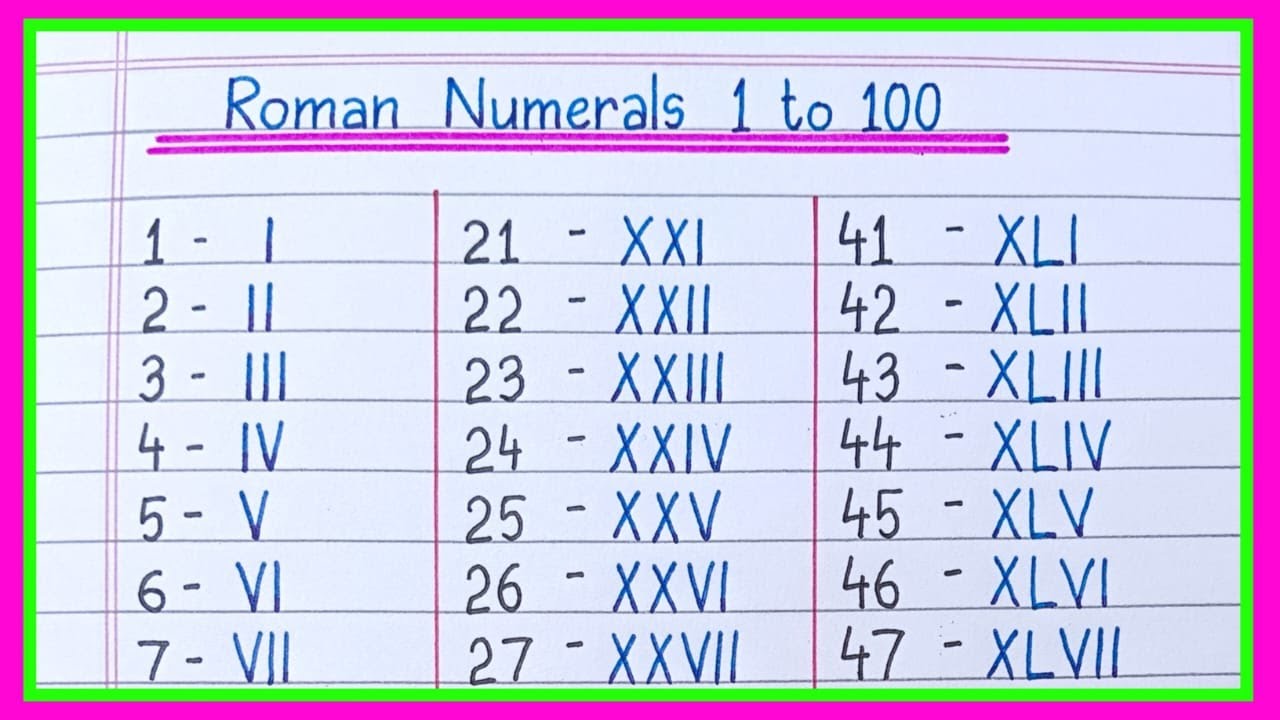 Roman Numerals 1 to 100
1 - I
2 - II
3 - III
4 - IV
5 - V
6 - VI
7 - VII
21 - XXI
22 - XXII
23 - XXIII
24 - XXIV
25 - XXV
26 - XXVI
27 - XXVII
41 - XLI
42 - XLII
43 - XLIII
44 - XLIV
45 - XLV
46 - XLVI
47 - XLVII